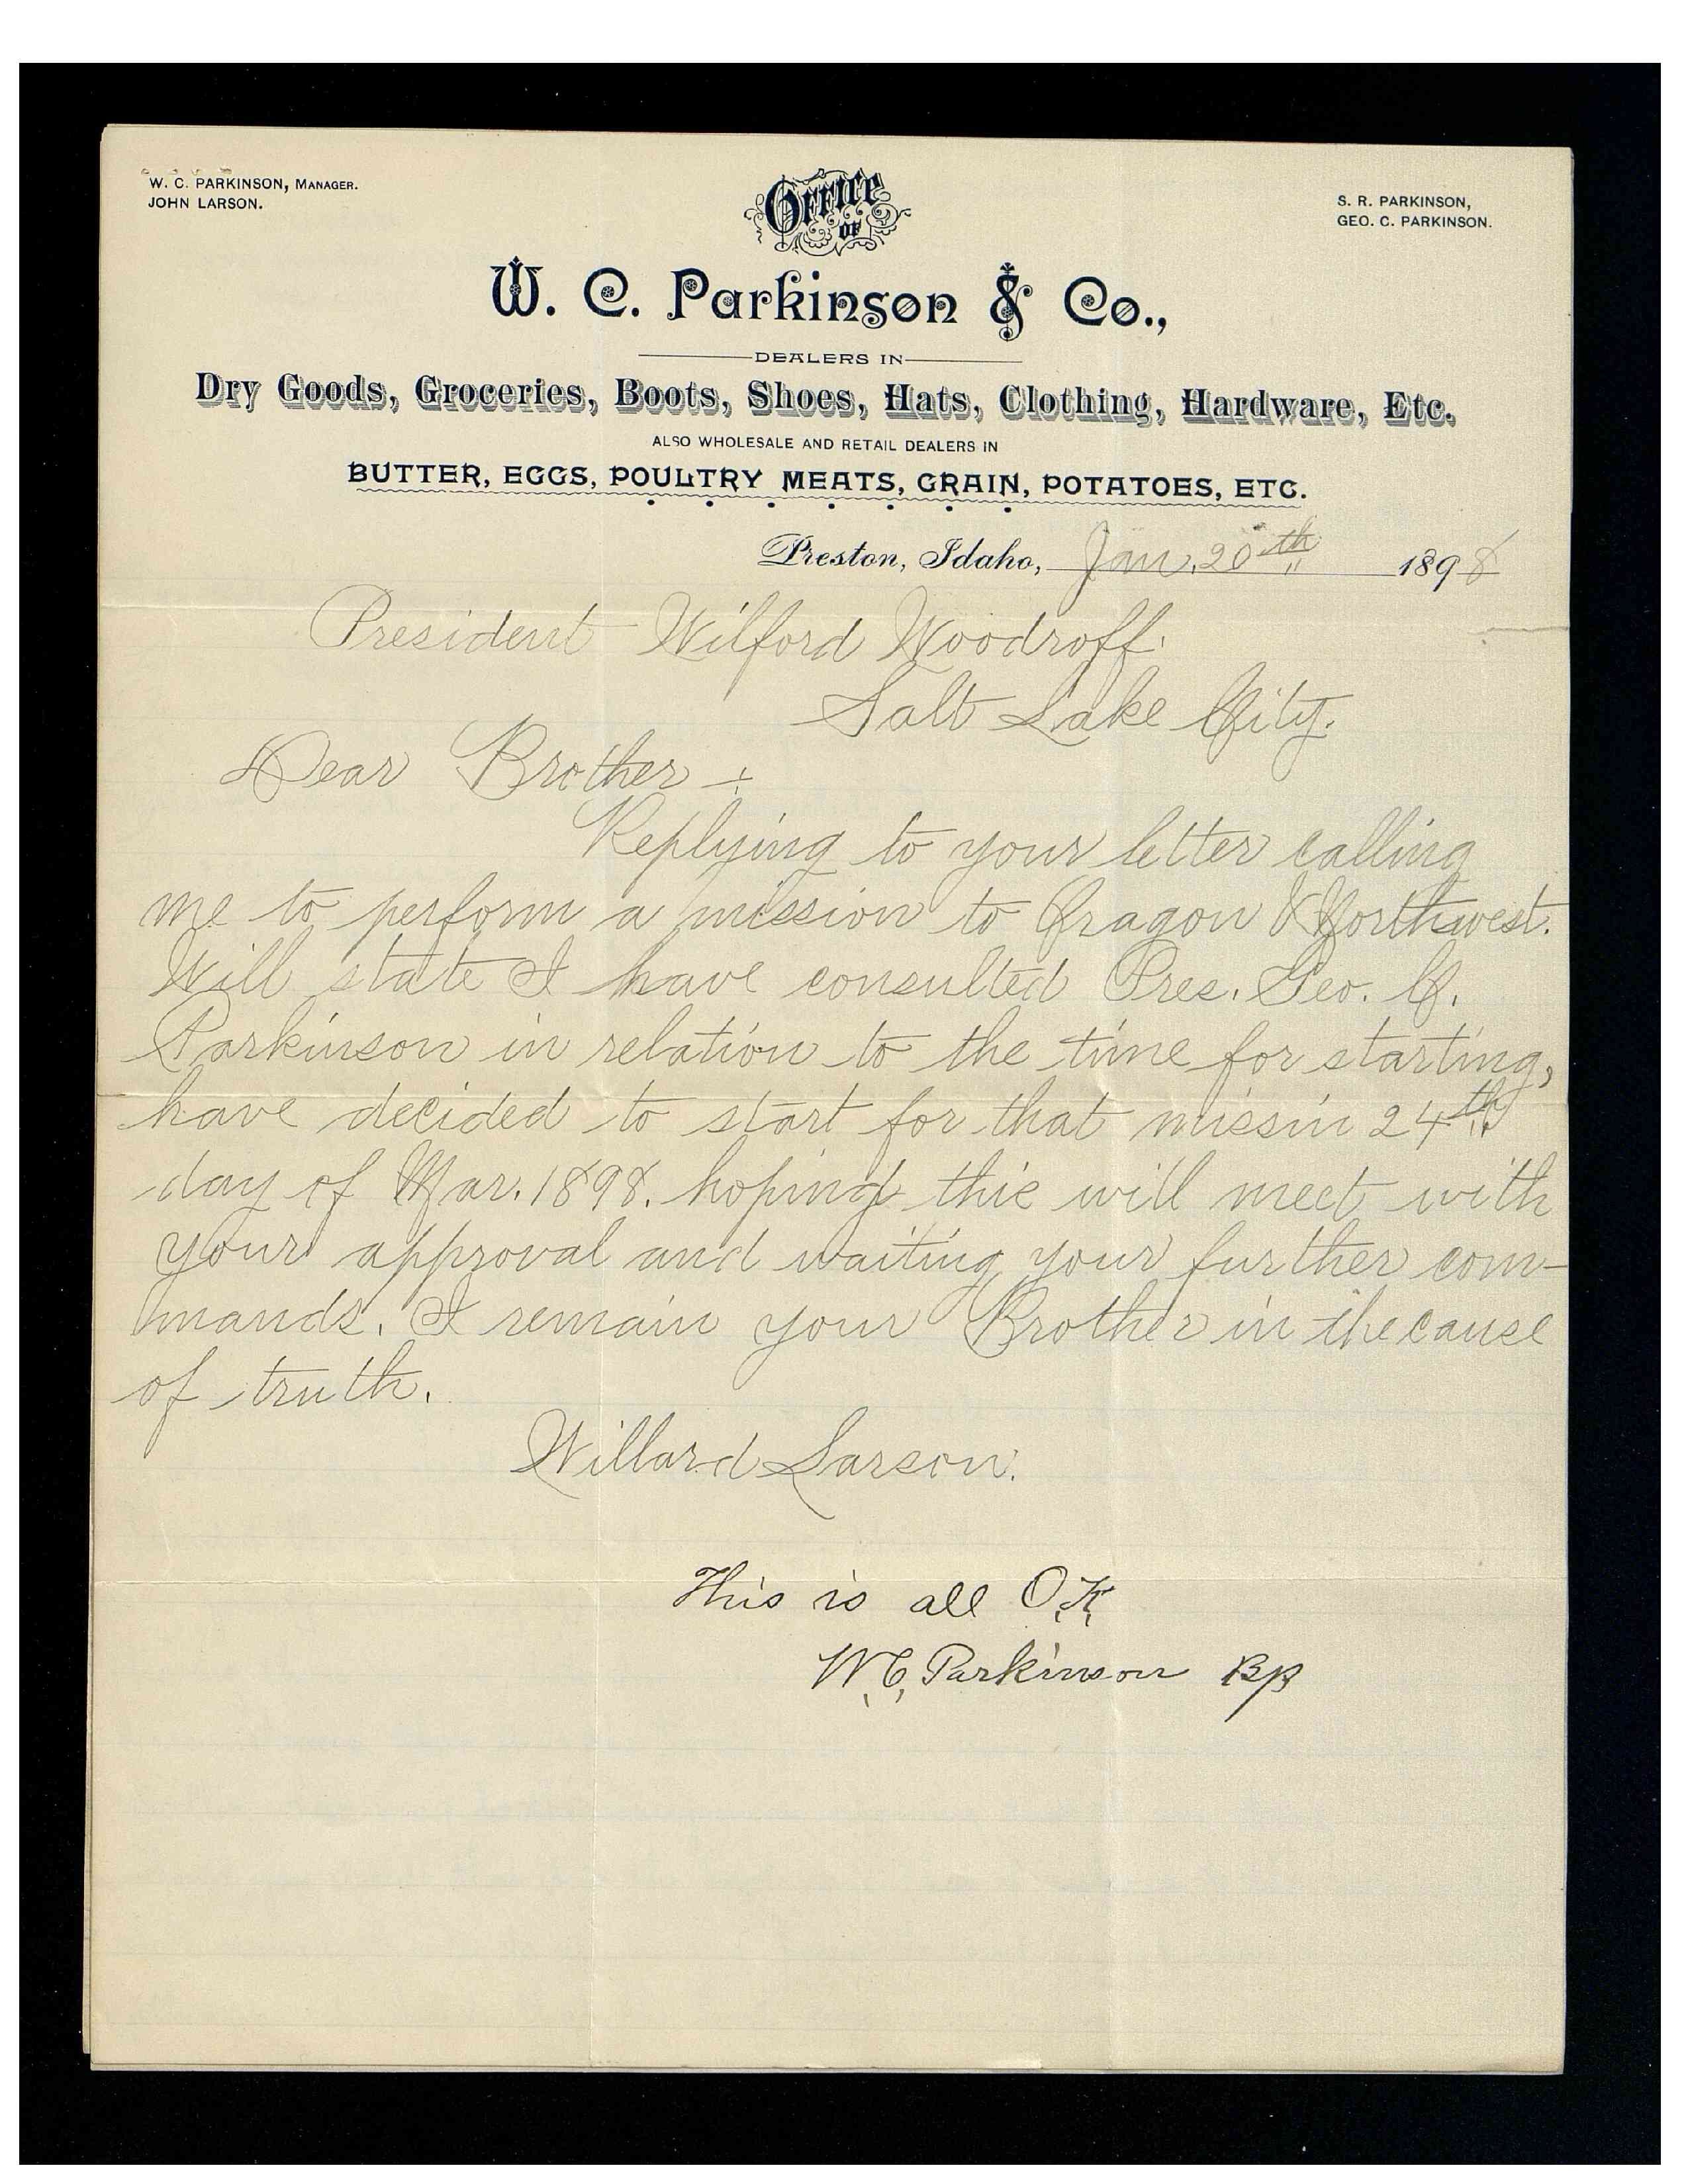 W. C. PARKINSON, MANAGER.
JOHN LARSON.
S. R. PARKINSON,
GEO. C. PARKINSON.
OFFICE
OF
W. C. Parkinson & Co.,
DEALERS IN
Dry Goods, Groceries, Boots, Shoes, Hats, Clothing, Hardware, Etc.
ALSO WHOLESALE AND RETAIL DEALERS IN
BUTTER, EGGS, POULTRY MEATS, GRAIN, POTATOES, ETC.
Preston, Idaho, Jan. 20th 1898
President Wilford Woodroff.
Salt Lake City.
Dear Brother:
Replying to your letter calling
me to perform a mission to Oragon & Northwest.
Will state I have consulted Pres. Geo. C.
Parkinson in relation to the time for starting,
have decided to start for that missin 24th
day of Mar. 1898. hoping this will meet with
your approval and waiting your further com-
mands. I remain your Brother in the cause
of truth.
Willard Larson.
This is all O.K.
W.C. Parkinson Bp